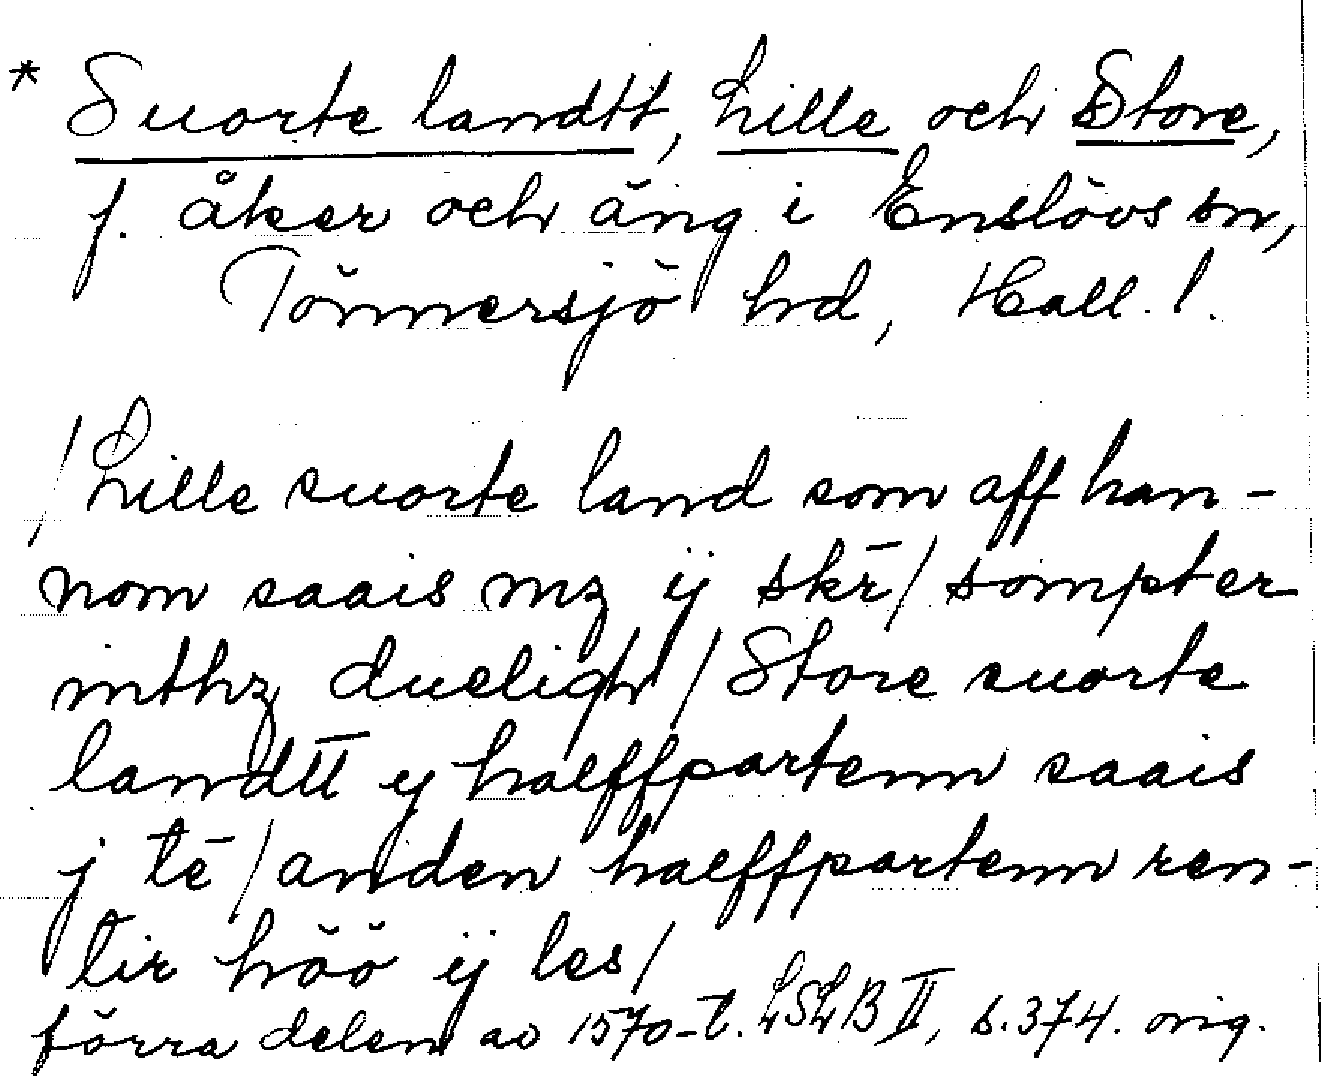 * Suorte landtt, Lille och Store,
f. åker och äng i Enslövs sn,
Tönnersjö hd, Hall. l.
/Lille suorte land som aff han-
nom saais mz ij skr̄/ sompter
mthz dueligh/ Store suorte
landtt ey halffpartenn saais
j tē/ anden halffpartenn ren-
tir höö ij les/
förra delen av 1570-t. LSLB II, s. 374. orig.